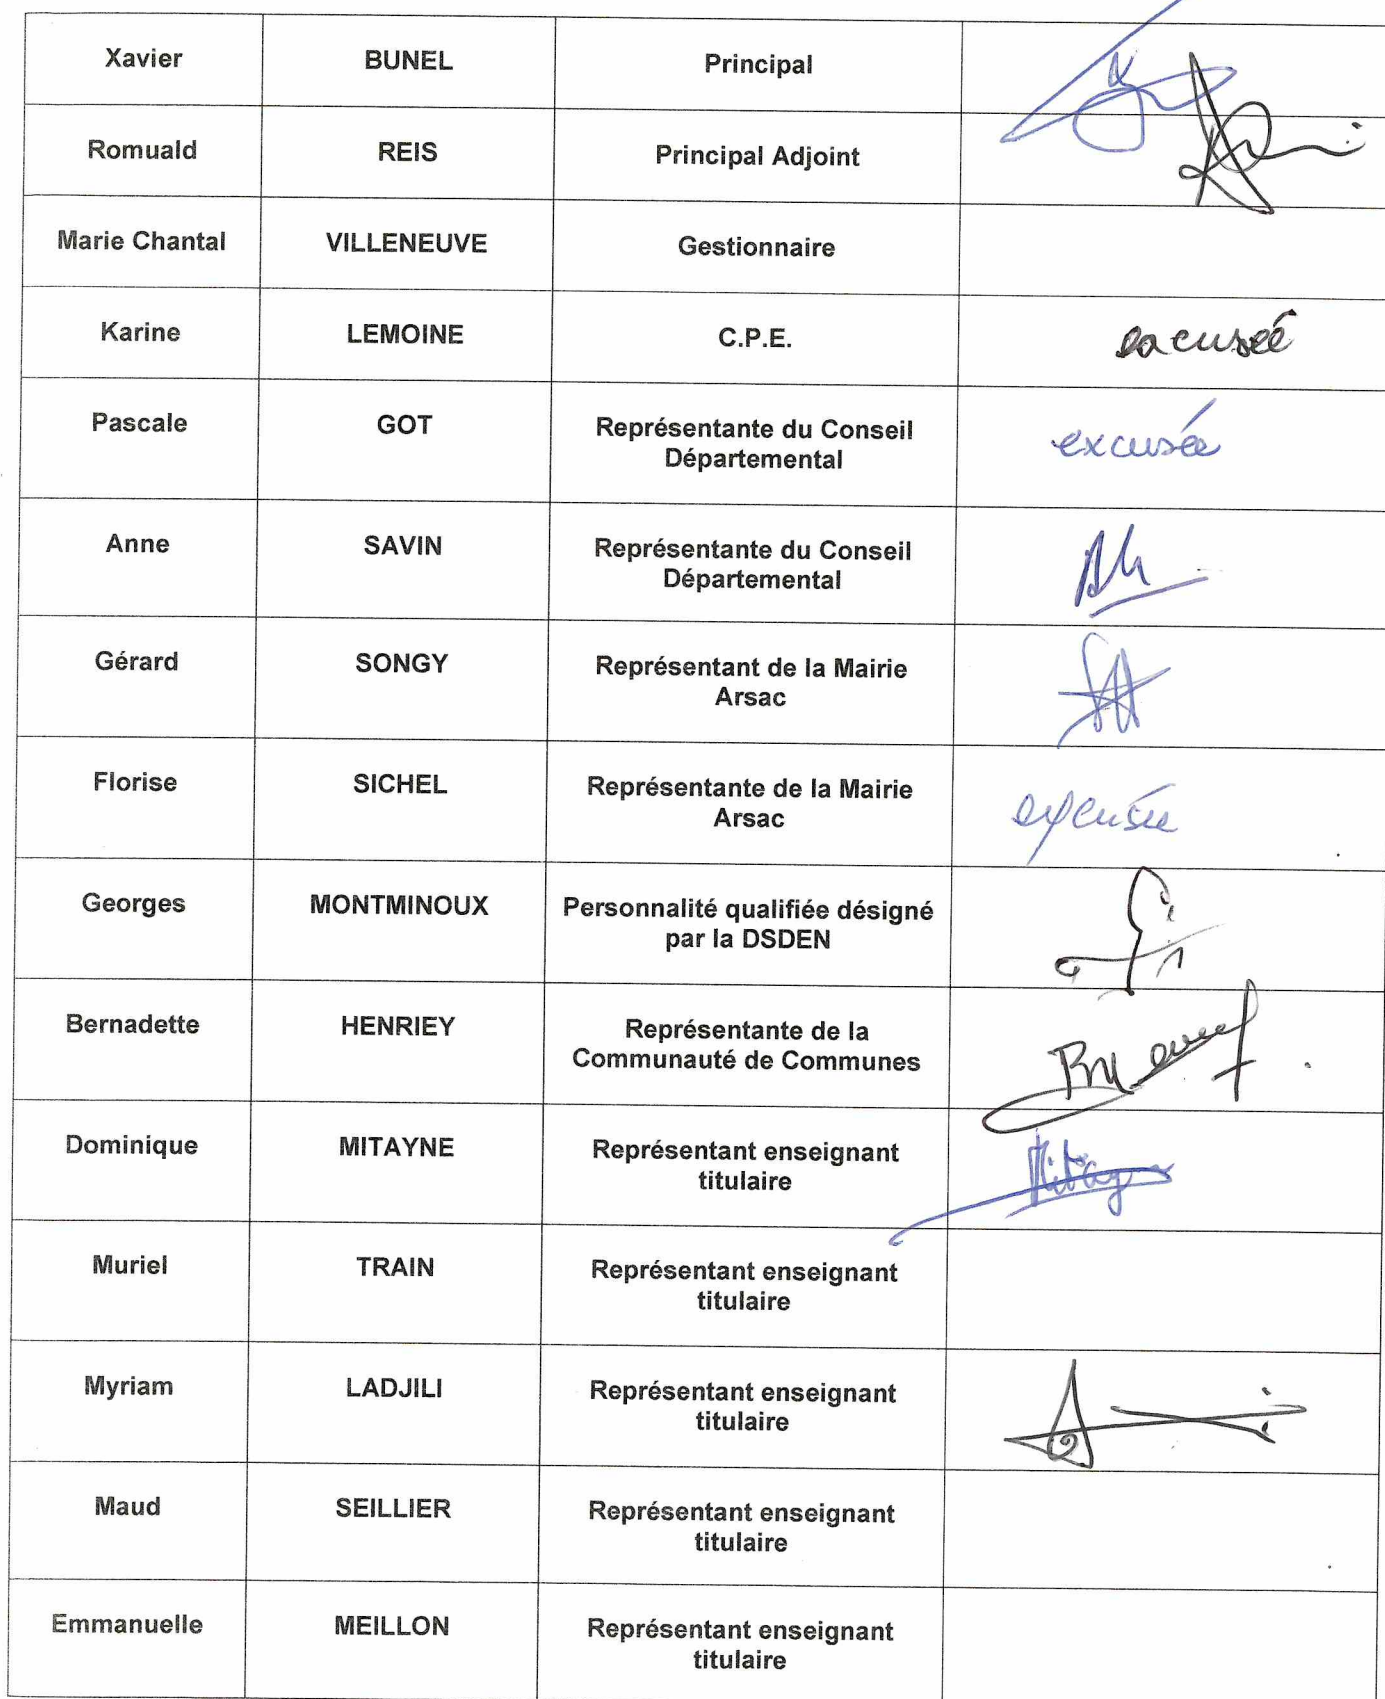 Xavier BUNEL Principal
Romuald REIS Principal Adjoint
Marie Chantal VILLENEUVE Gestionnaire
Karine LEMOINE C.P.E. excusée
Pascale GOT Représentante du Conseil
Départemental excusée
Anne SAVIN Représentante du Conseil
Départemental
Gérard SONGY Représentant de la Mairie
Arsac
Florise SICHEL Représentante de la Mairie
Arsac excusée
Georges MONTMINOUX Personnalité qualifiée désigné
par la DSDEN
Bernadette HENRIEY Représentante de la
Communauté de Communes
Dominique MITAYNE Représentant enseignant
titulaire
Muriel TRAIN Représentant enseignant
titulaire
Myriam LADJILI Représentant enseignant
titulaire
Maud SEILLIER Représentant enseignant
titulaire
Emmanuelle MEILLON Représentant enseignant
titulaire